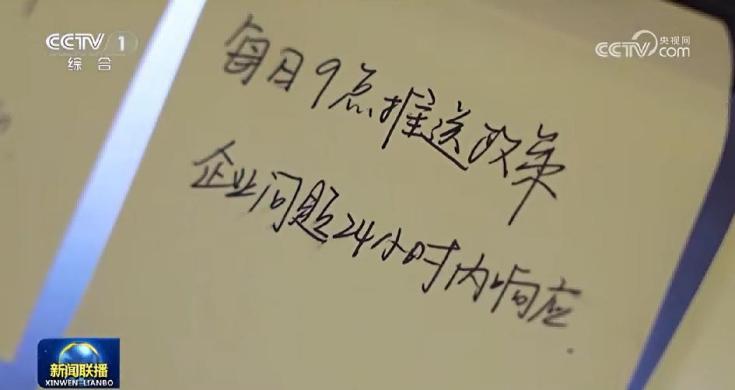 CCTV 1
综合
央视网
CCTV.com
每日9点推送政策
企业问题24小时内响应.
新闻联播
XINWEN LIANBO